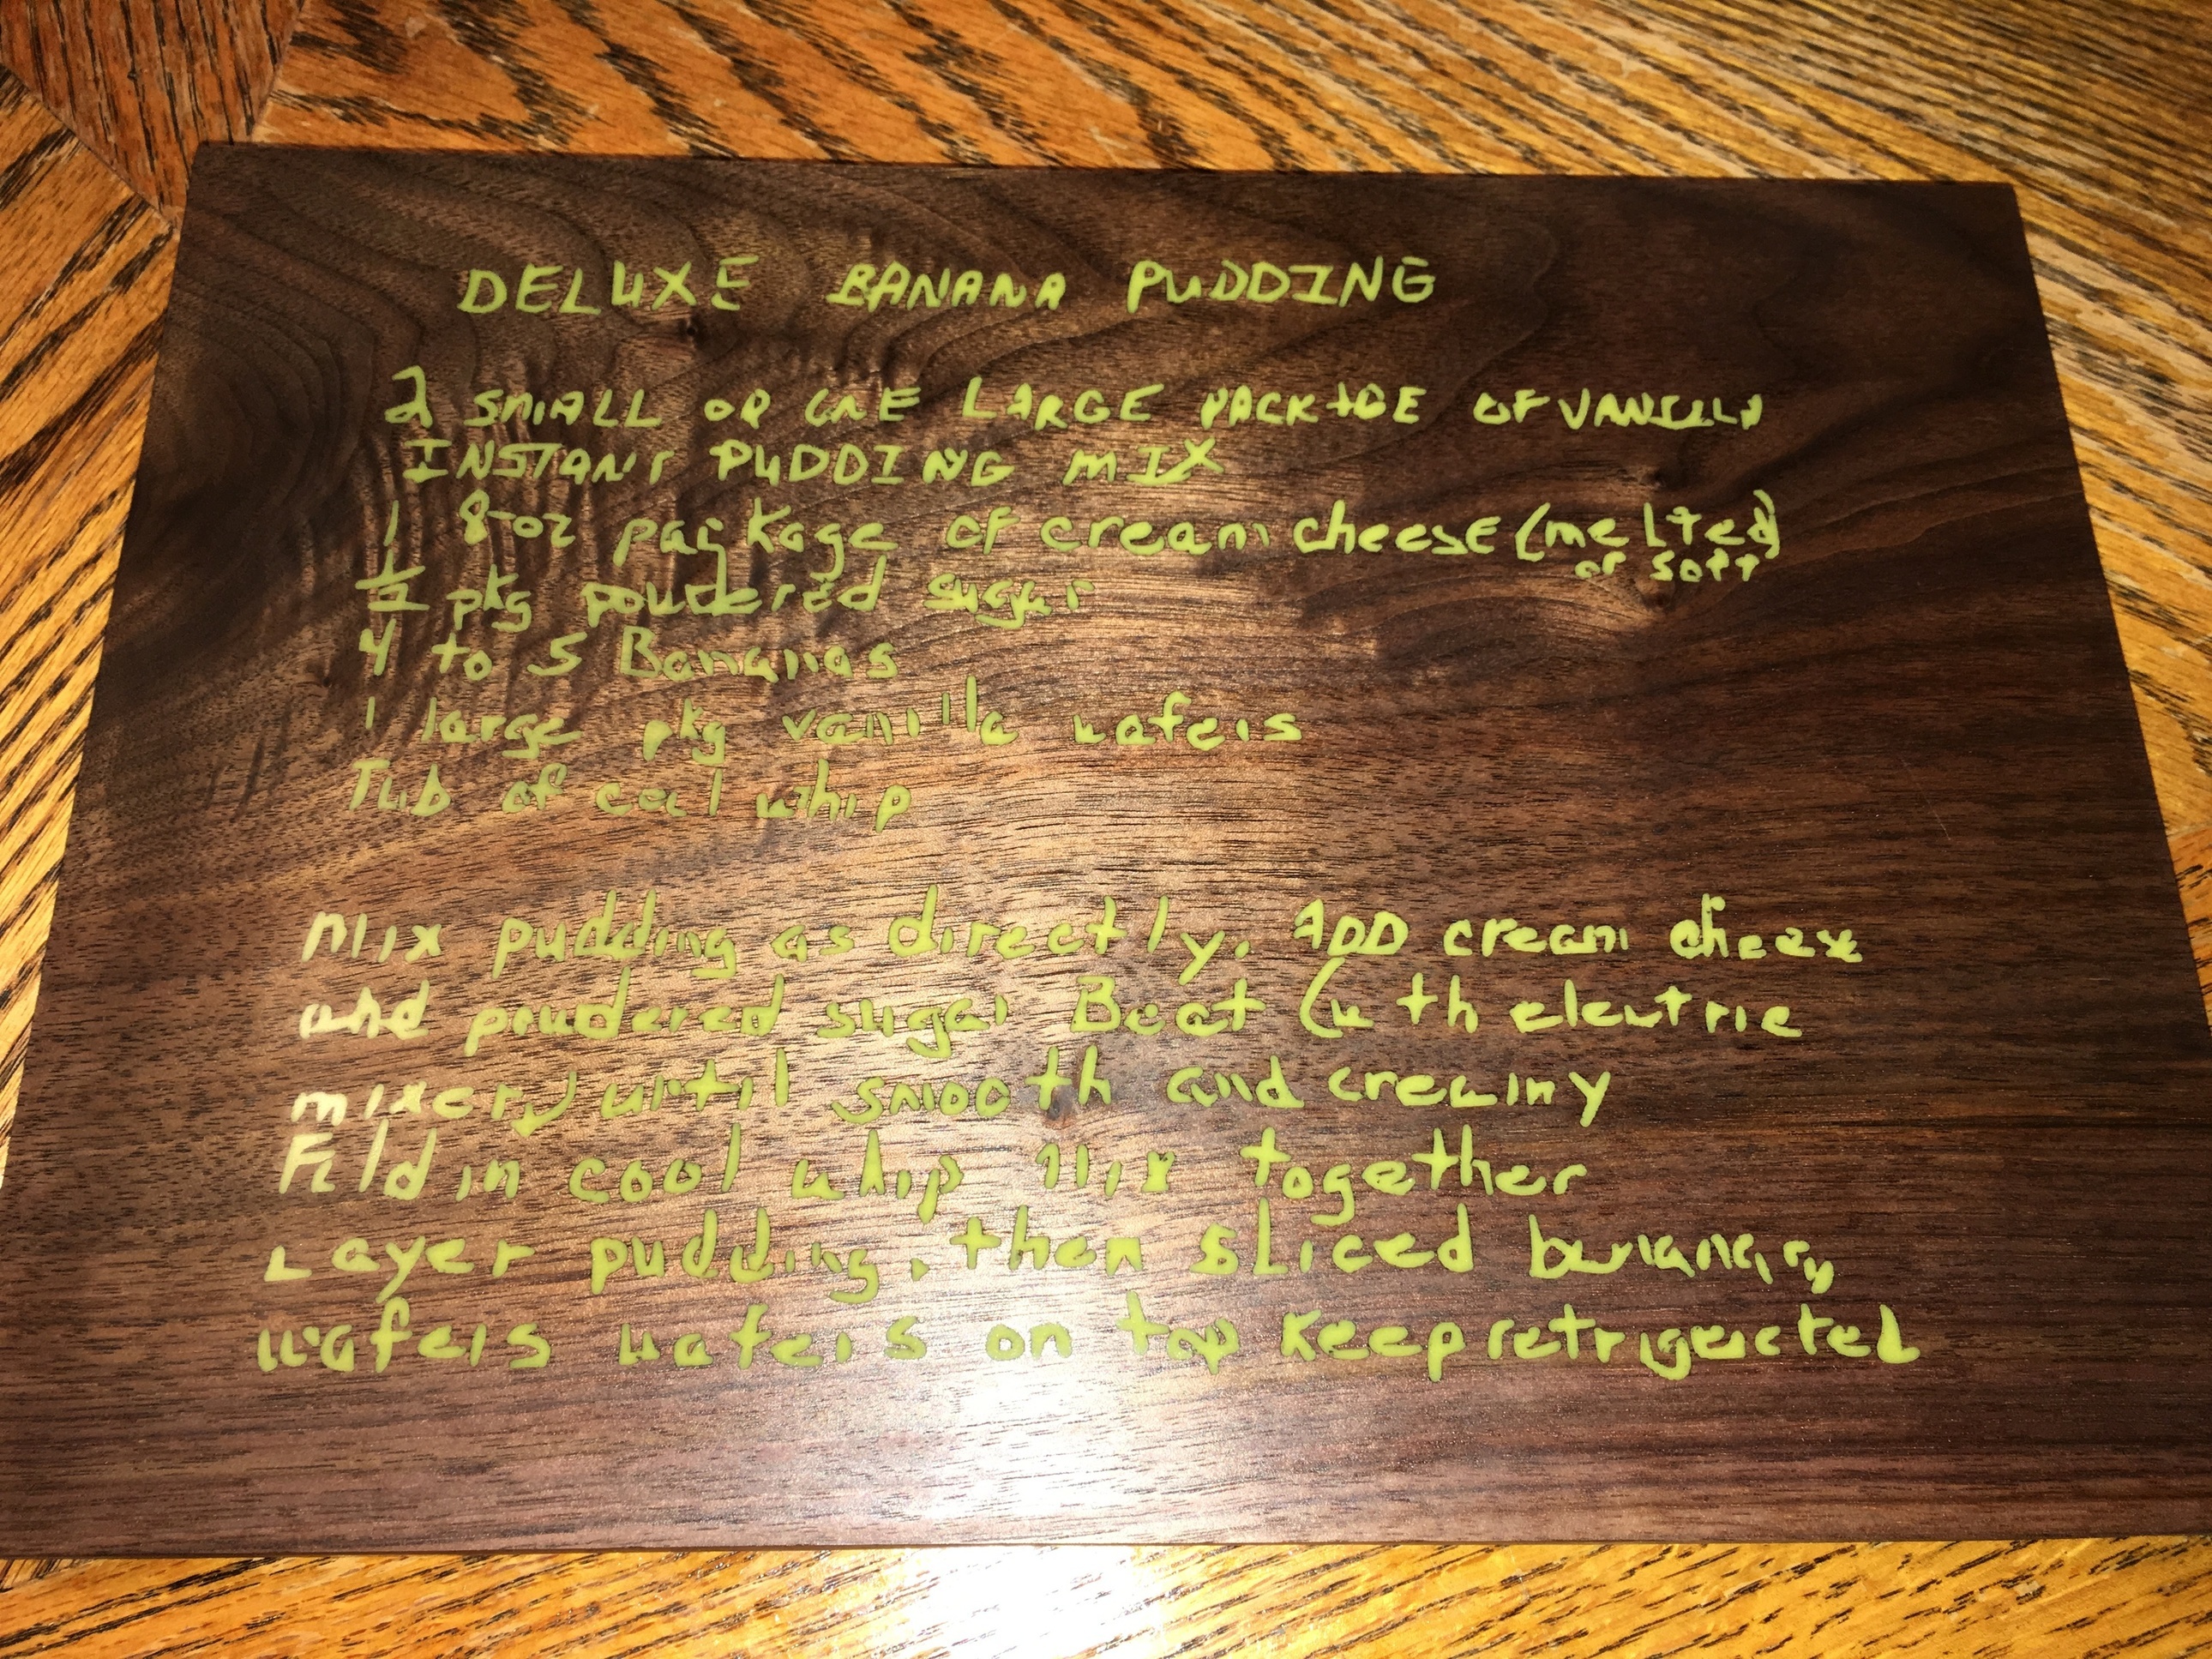 DELUXE BANANA PUDDING
2 SMALL OR ONE LARGE PACKAGE OF VANILLA
INSTANT PUDDING MIX
1 8-oz package of cream cheese (melted)
or soft
1/2 pkg powdered sugar
4 to 5 Bananas
1 large pkg vanilla wafers
Tub of cool whip
Mix pudding as directly. ADD cream cheese
and powdered sugar Beat (with electric
mixer) until smooth and creamy
Fold in cool whip Mix together
Layer pudding, then sliced bananas,
wafers wafers on top Keep refrigerated